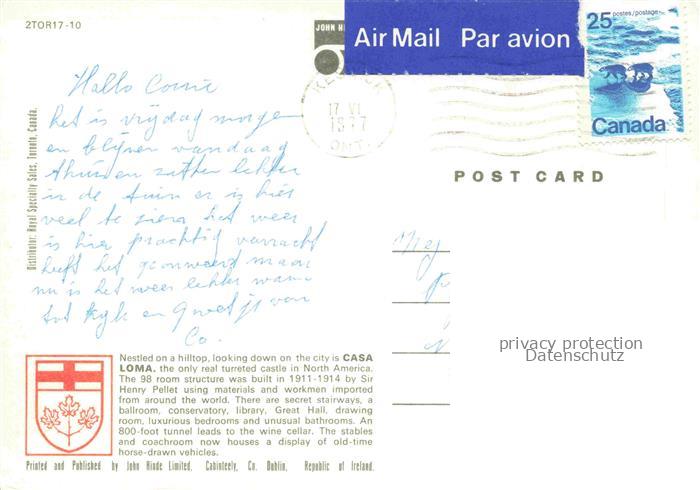 2TOR17-10
JOHN HI
Air Mail Par avion
25 postes/postage
Canada
17 VI
1977
ONT.
POST CARD
Hallo Corrie
het is vrijdag morgen
en blijven vandaag
thuis en zitten lekker
in de tuin er is hier
veel te zien het weer
is hier prachtig vannacht
heeft het geonweerd maar
nu is het weer lekker warm
tot kijk en groetjes van
Co.
Mej
Distributor: Royal Specialty Sales, Toronto, Canada.
privacy protection
Datenschutz
Nestled on a hilltop, looking down on the city is CASA
LOMA, the only real turreted castle in North America.
The 98 room structure was built in 1911-1914 by Sir
Henry Pellet using materials and workmen imported
from around the world. There are secret stairways, a
ballroom, conservatory, library, Great Hall, drawing
room, luxurious bedrooms and unusual bathrooms. An
800-foot tunnel leads to the wine cellar. The stables
and coachroom now houses a display of old-time
horse-drawn vehicles.
Printed and Published by John Hinde Limited, Cabinteely, Co. Dublin, Republic of Ireland.